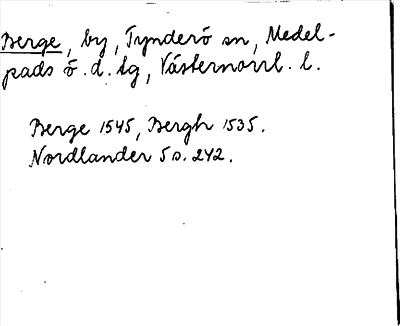 Berge, by, Tynderö sn, Medel-
pads ö. d. tg, Västernorrl. l.
Berge 1545, Bergh 1535.
Nordlander 5 s. 242.